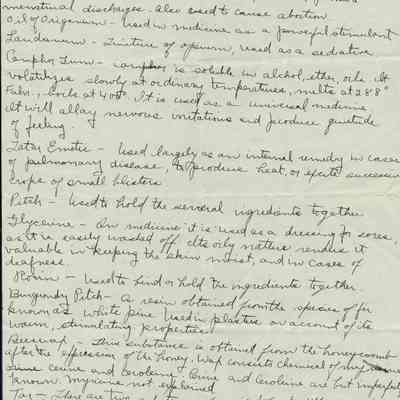 menstrual discharges. Also used to cause abortion
Oil of Origanum - Used in medicine as a powerful stimulant
Laudanum - Tincture of opium, used as a sedative
Camphor Gum - camphor is soluble in alchol, ether, oils. It
volatilizes slowly at ordinary temperatures, melts at 288°
Fahr., boils at 400°. It is used as a universal medicine
It will allay nervous irritations and produce quietude
of feeling.
Tatar Emetic - Used largely as an internal remedy in cases
of pulmonary disease, to produce heat, or excite successive
crops of small blisters
Pitch - Used to hold the several ingredients together
Glycerine - In medicine it is used as a dressing for sores,
as it is easily washed off its oily nature renders it
valuable in keeping the skin moist, and in cases of
deafness
Rosin - Used to bind or hold the ingredients together.
Burgundy Pitch - A resin obtained from the species of fir
known as white pine Used in plasters on account of its
warm, stimulating properties
Beeswax - This substance is obtained from the honeycomb
after the expression of the honey. Wax consists chemical of
cerine and ceroleine Cerine and Ceroleine are but imperfectly
known. Myricine not explained
Tar - There are two